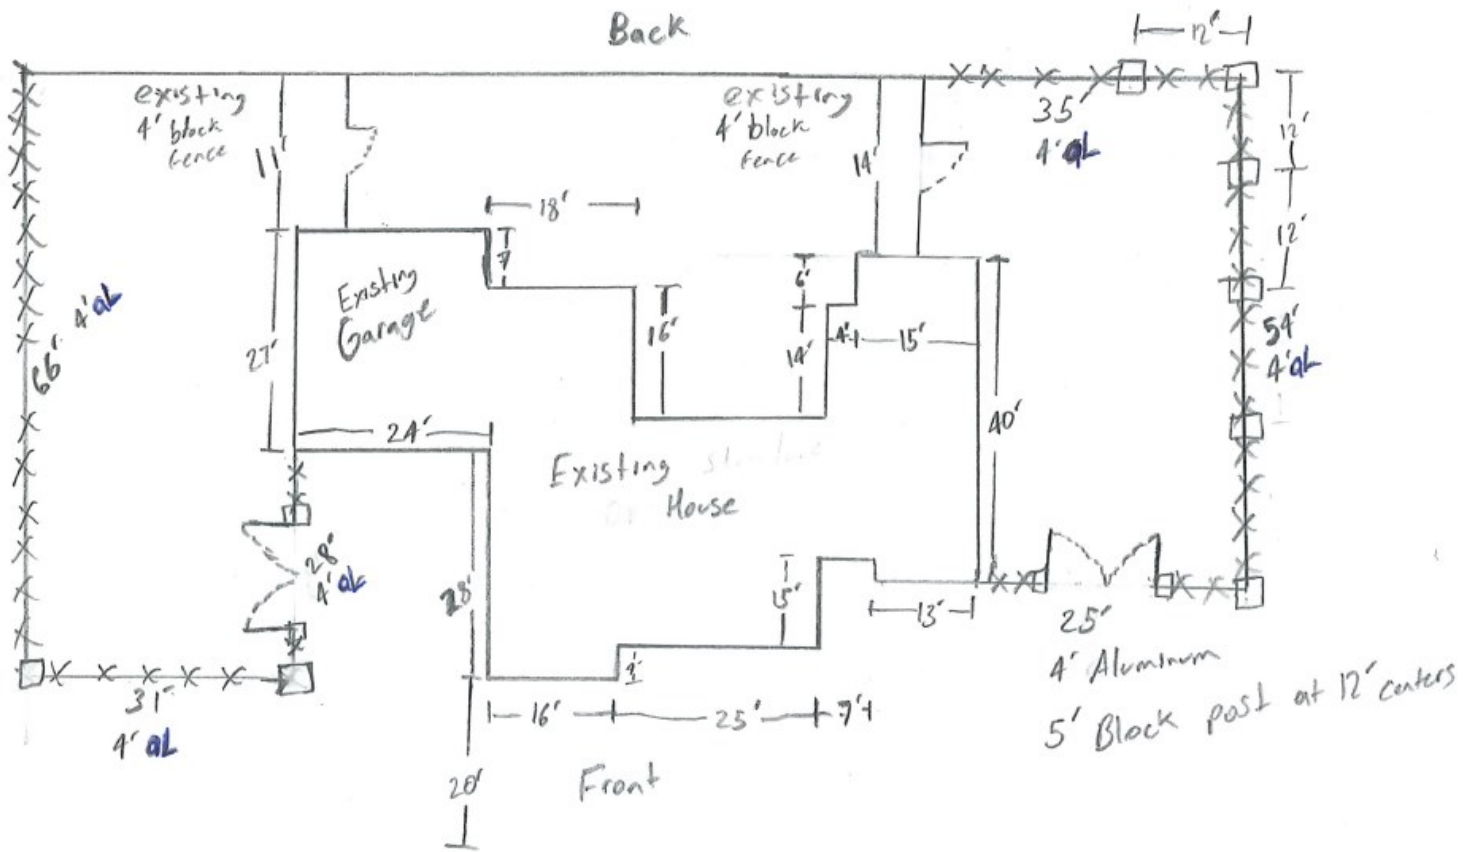 Back
12'
existing
4' block
fence
existing
4' block
fence
35'
4' aL
12'
11'
14'
18'
7'
12'
Existing
Garage
6'
4' aL
66'
27'
16'
14'
4'
15'
54'
4' aL
40'
24'
Existing
House
28'
4' aL
28'
15'
13'
25'
4' Aluminum
5' Block post at 12' centers
31'
4' aL
16'
25'
7'
20'
Front